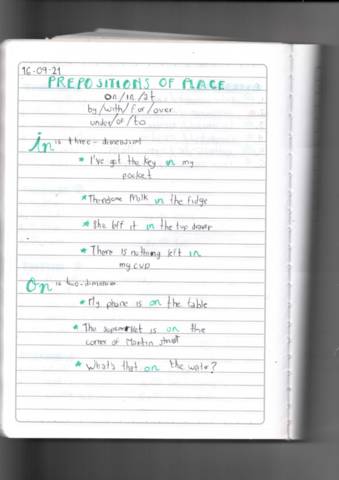 16-09-21
PREPOSITIONS OF PLACE
on/in/at
by/with/for/over
under/of/to
in is three-dimensional
* I've got the key in my
pocket
* milk in the fridge
* She left it in the top drawer
* There is nothing left in
my cup
on is two-dimension
* My phone is on the table
* The supermarket is on the
corner of Martin street
* What's that on the water?